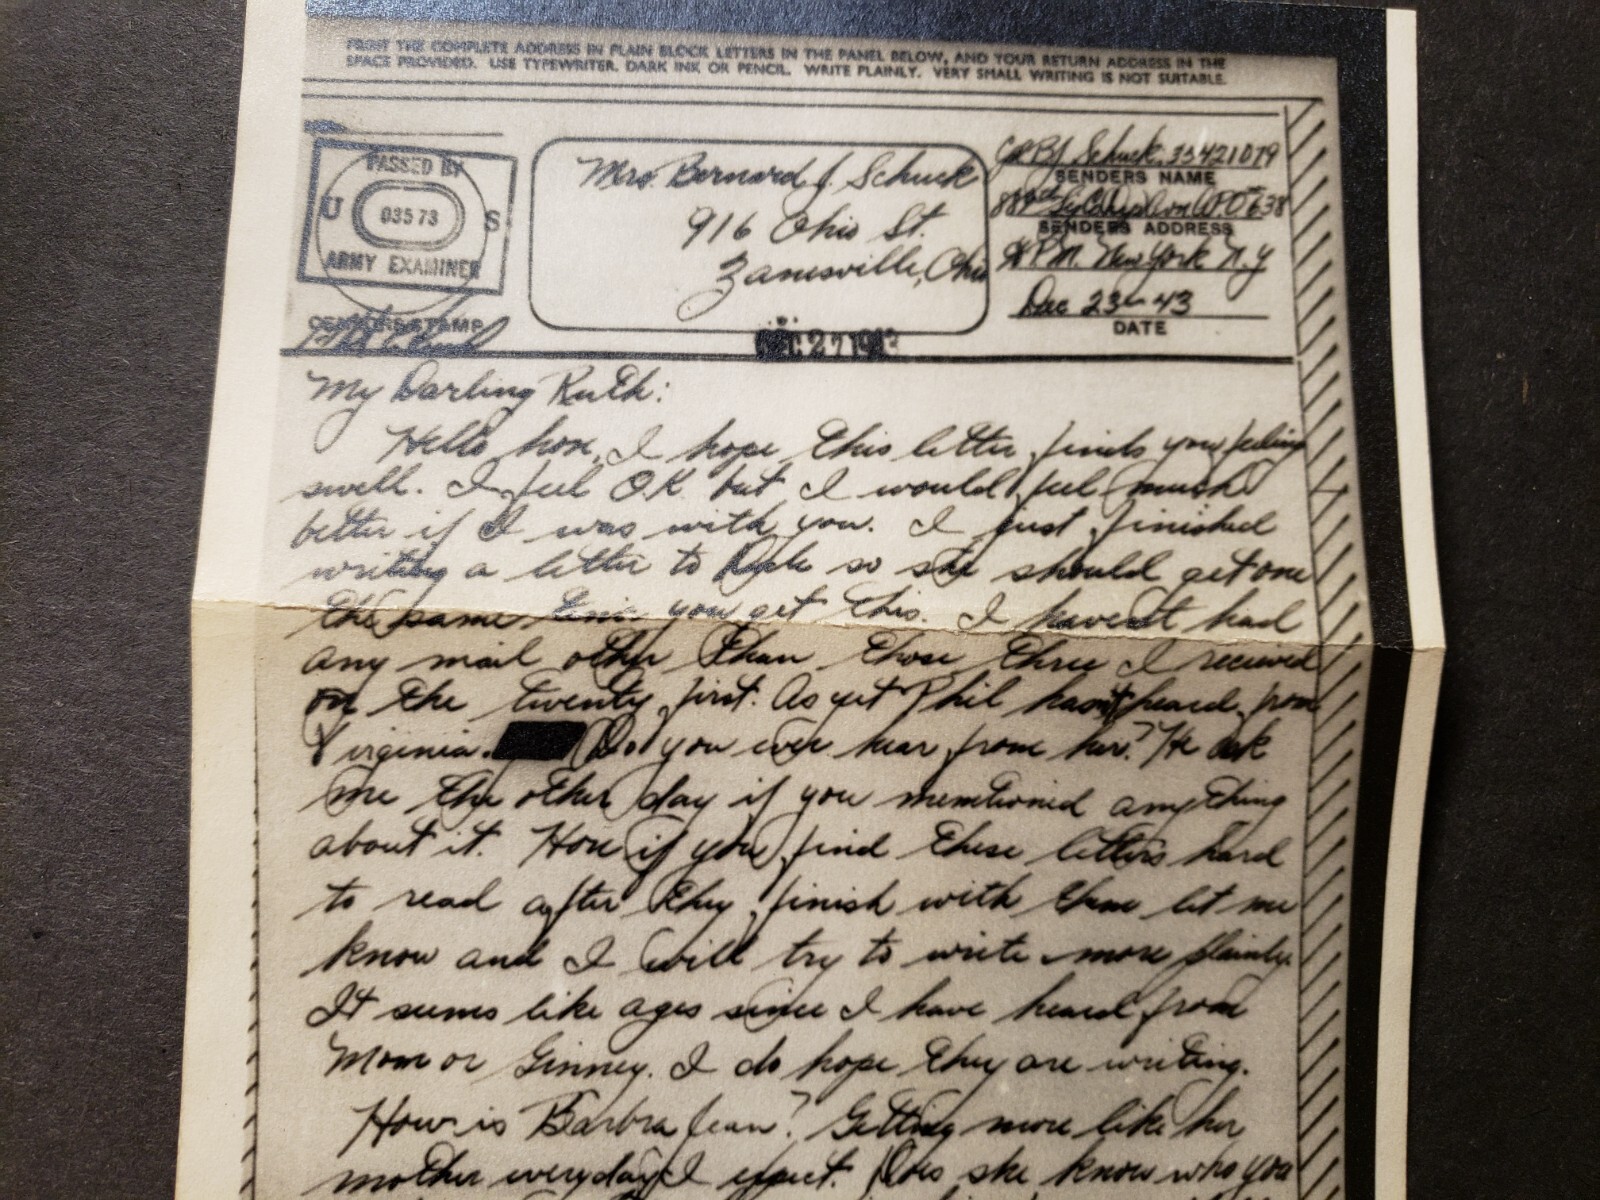 PRINT THE COMPLETE ADDRESS IN PLAIN BLOCK LETTERS IN THE PANEL BELOW, AND YOUR RETURN ADDRESS IN THE
SPACE PROVIDED. USE TYPEWRITER, DARK INK OR PENCIL. WRITE PLAINLY. VERY SMALL WRITING IS NOT SUITABLE.
PASSED BY
U 03573 S
ARMY EXAMINER
CENSOR'S STAMP
Mrs. Bernard J. Schuck
916 Ohio St.
Zanesville, Ohio
B J Schuck 35421079
SENDERS NAME
SENDERS ADDRESS
P.M. New York N.Y
Dec 23 - 43
DATE
DEC 27 1943
My Darling Ruth:
Hello hon, I hope this letter finds you feeling
swell. I feel O.K. but I would feel much
better if I was with you. I just finished
writing a letter to so she should get one
the same time you get this. I havent had
any mail other than those three I recieved
on the twenty first. As yet Phil hasn't heard from
Virginia. Do you ever hear from her? He ask
me the other day if you mentioned anything
about it. Hon if you find these letters hard
to read after they finish with them let me
know and I will try to write more plainly.
It seems like ages since I have heard from
Mom or Ginney. I do hope they are writing.
How is Barbra Jean? Getting more like her
mother everyday I expect. Does she know who you